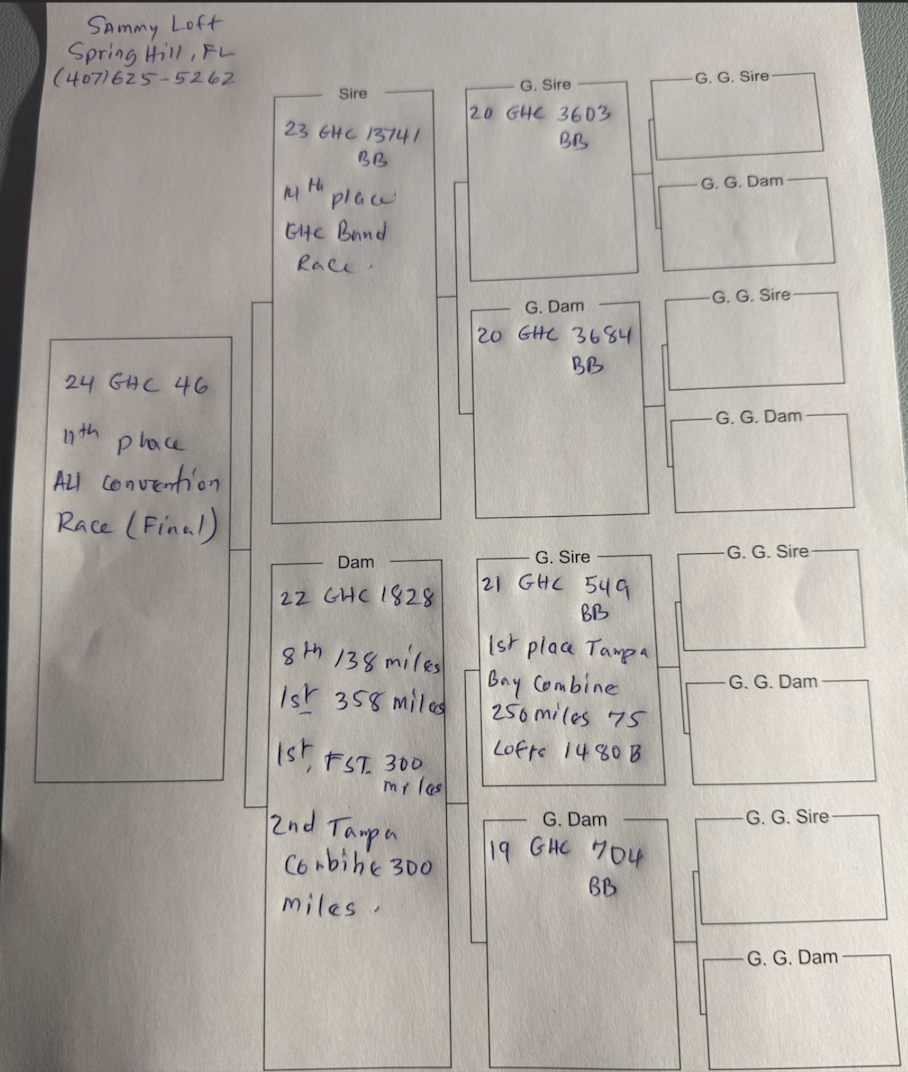 Sammy Loft
Spring Hill, FL
(407)625-5262
24 GHC 46
11th place
All convention
Race (Final)
Sire
23 GHC 13741
BB
14th place
GHC Band
Race.
Dam
22 GHC 1828
8th 138 miles
1st 358 miles
1st, FST. 300
miles
2nd Tampa
Combine 300
miles.
G. Sire
20 GHC 3603
BB
G. Dam
20 GHC 3684
BB
G. Sire
21 GHC 549
BB
1st place Tampa
Bay Combine
250 miles 75
Lofts 1480 B
G. Dam
19 GHC 704
BB
G. G. Sire
G. G. Dam
G. G. Sire
G. G. Dam
G. G. Sire
G. G. Dam
G. G. Sire
G. G. Dam